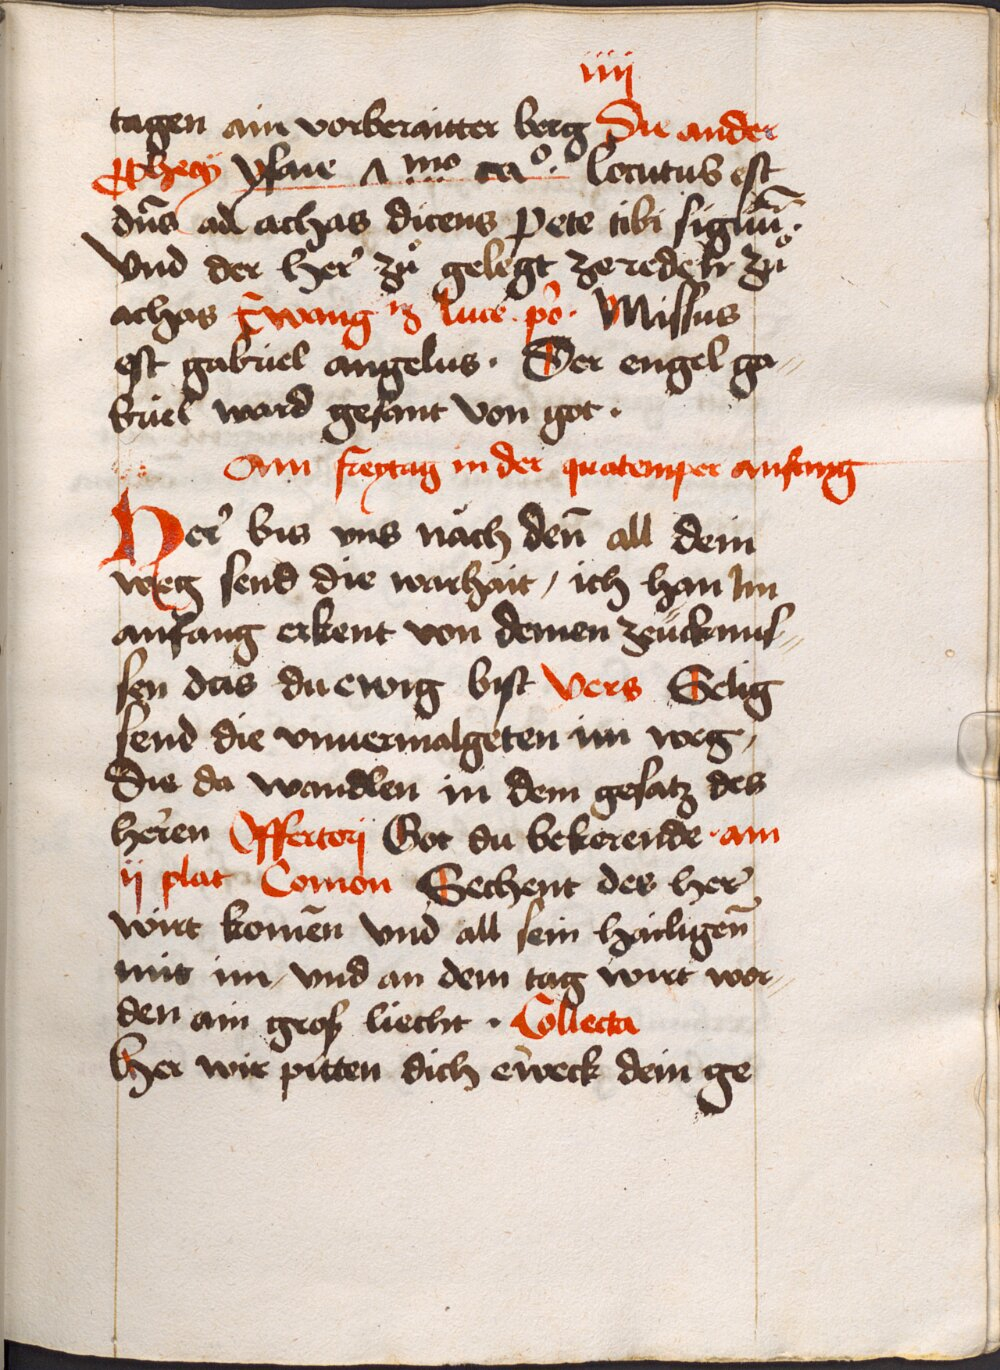 iiij
tagen ain vorberaitter berg Die ander
ꝓphecÿ Ysaie ʌ iiiᵒ caᵒ. locutus est
dn̄s ad achas dicens Pete tibi signū.
Vnd der her' zů gelegt ze redeñ zů
achas Ewang luce p̄o. Missus
est gabriel angelus. Der engel ga⸗
briel ward gesant von got.
Am freytag in der quatemper anfang
Her' bis vns nächeñ all dein
weg send die warhait / ich han Im
anfang erkent von deinen zeücknus⸗
sen das du ewig bist Vers Selig
send die vnuermalgeten im weg /
Die da wandlen in dem gesatz des
heren Offertorj Got du bekerende am
ij plat Comon Sechent der her'
wirt komen̄ Vnd all sein hailigen̄
mit im / Vnd an dem tag wirt wor⸗
den ain gros liecht. Collecta
Her wir pitten dich erweck dein ge